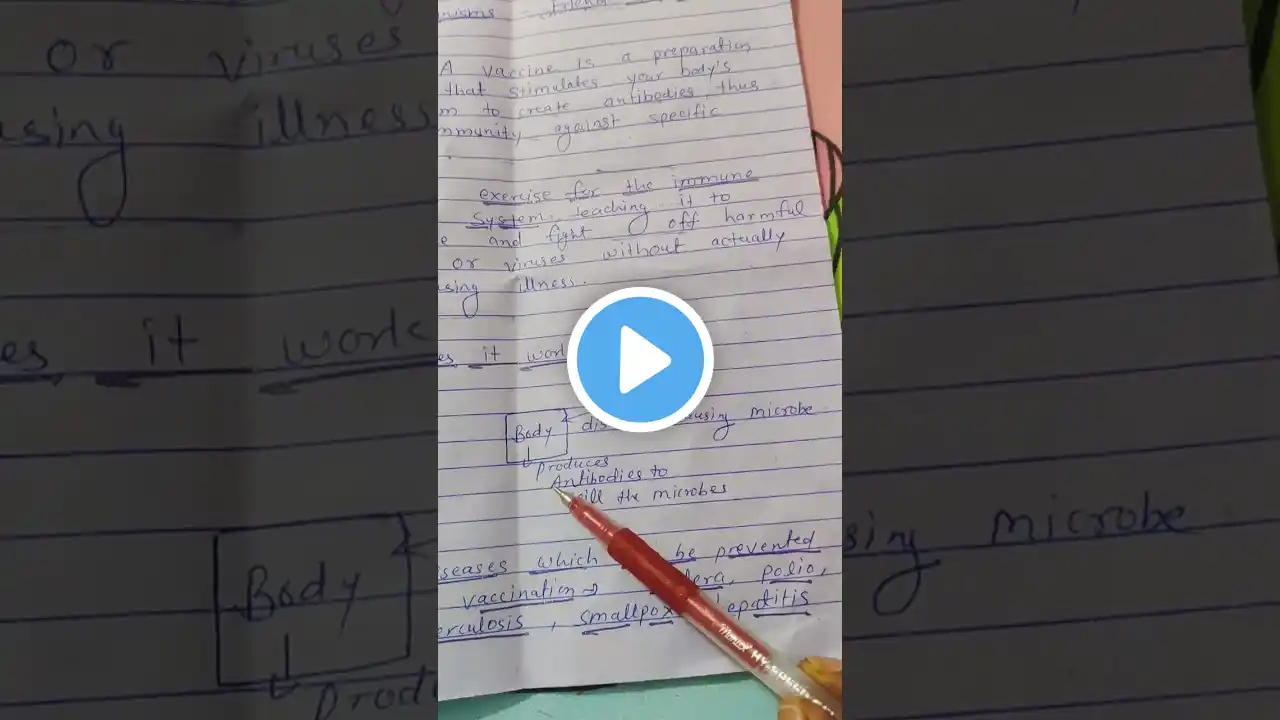 A vaccine is a preparation
that stimulates your body's
m to create antibodies, thus
mmunity against specific
exercise for the immune
system, teaching it to
e and fight off harmful
or viruses without actually
using illness.
es it work
Body
causing microbe
produces
Antibodies to
kill the microbes
iseases which be prevented
vaccination → polio,
erculosis, smallpox hepatitis